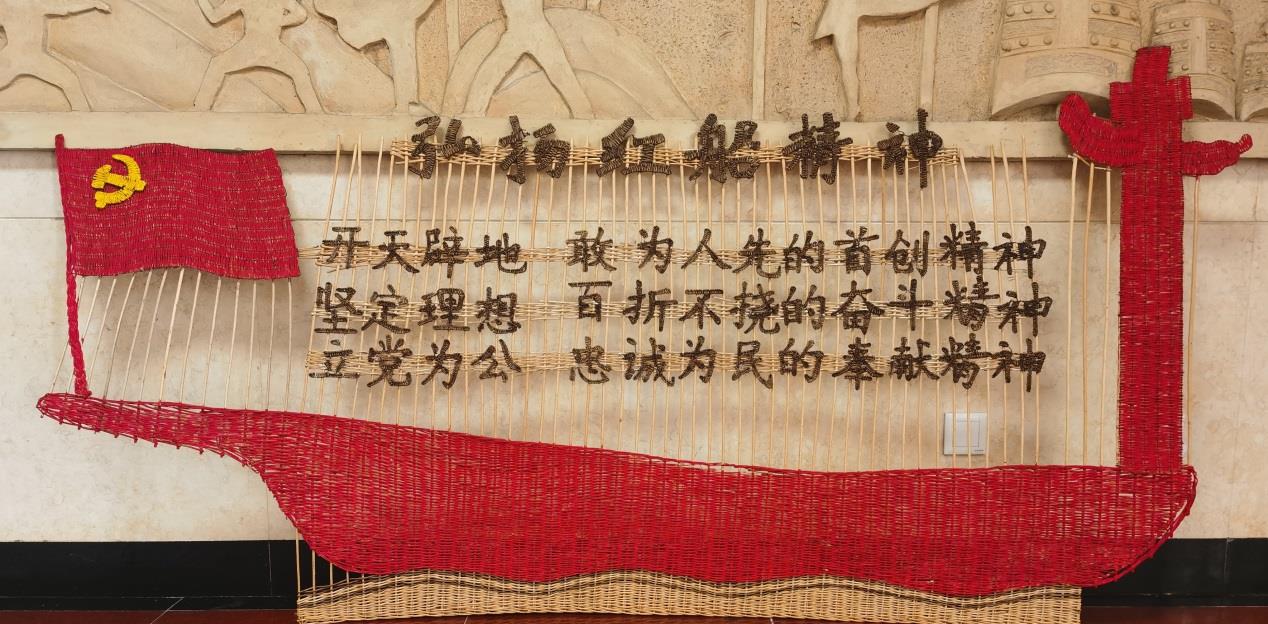 弘扬红船精神
开天辟地 敢为人先的首创精神
坚定理想 百折不挠的奋斗精神
立党为公 忠诚为民的奉献精神